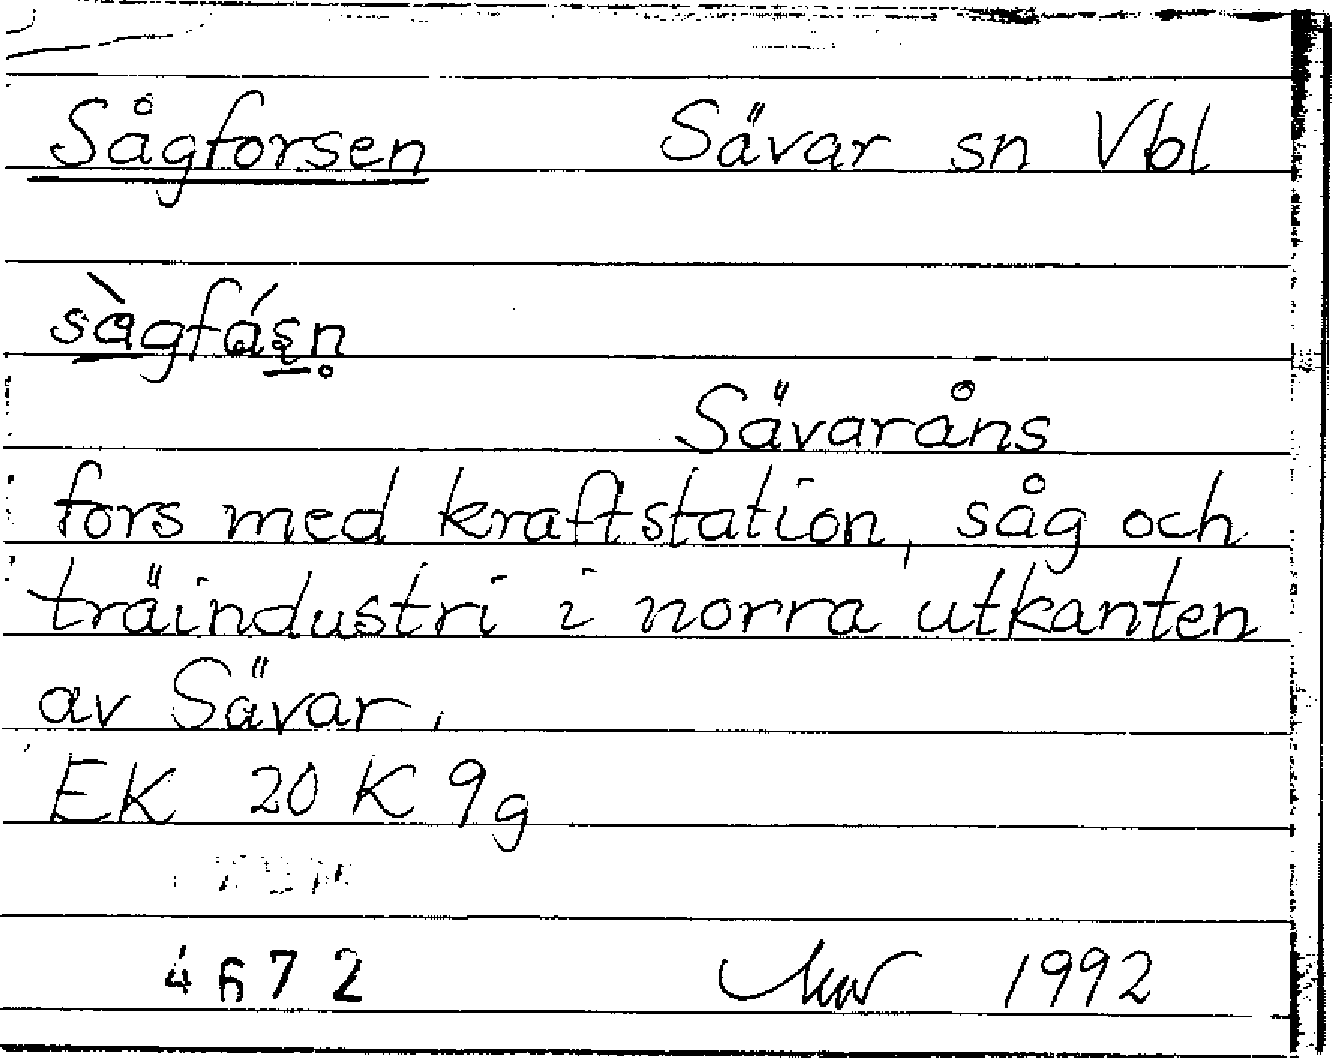 Sågforsen Sävar sn Vbl
sàgfásn̥
Sävaråns
fors med kraftstation, såg och
träindustri i norra utkanten
av Sävar.
EK 20 K 9g
4672 1992